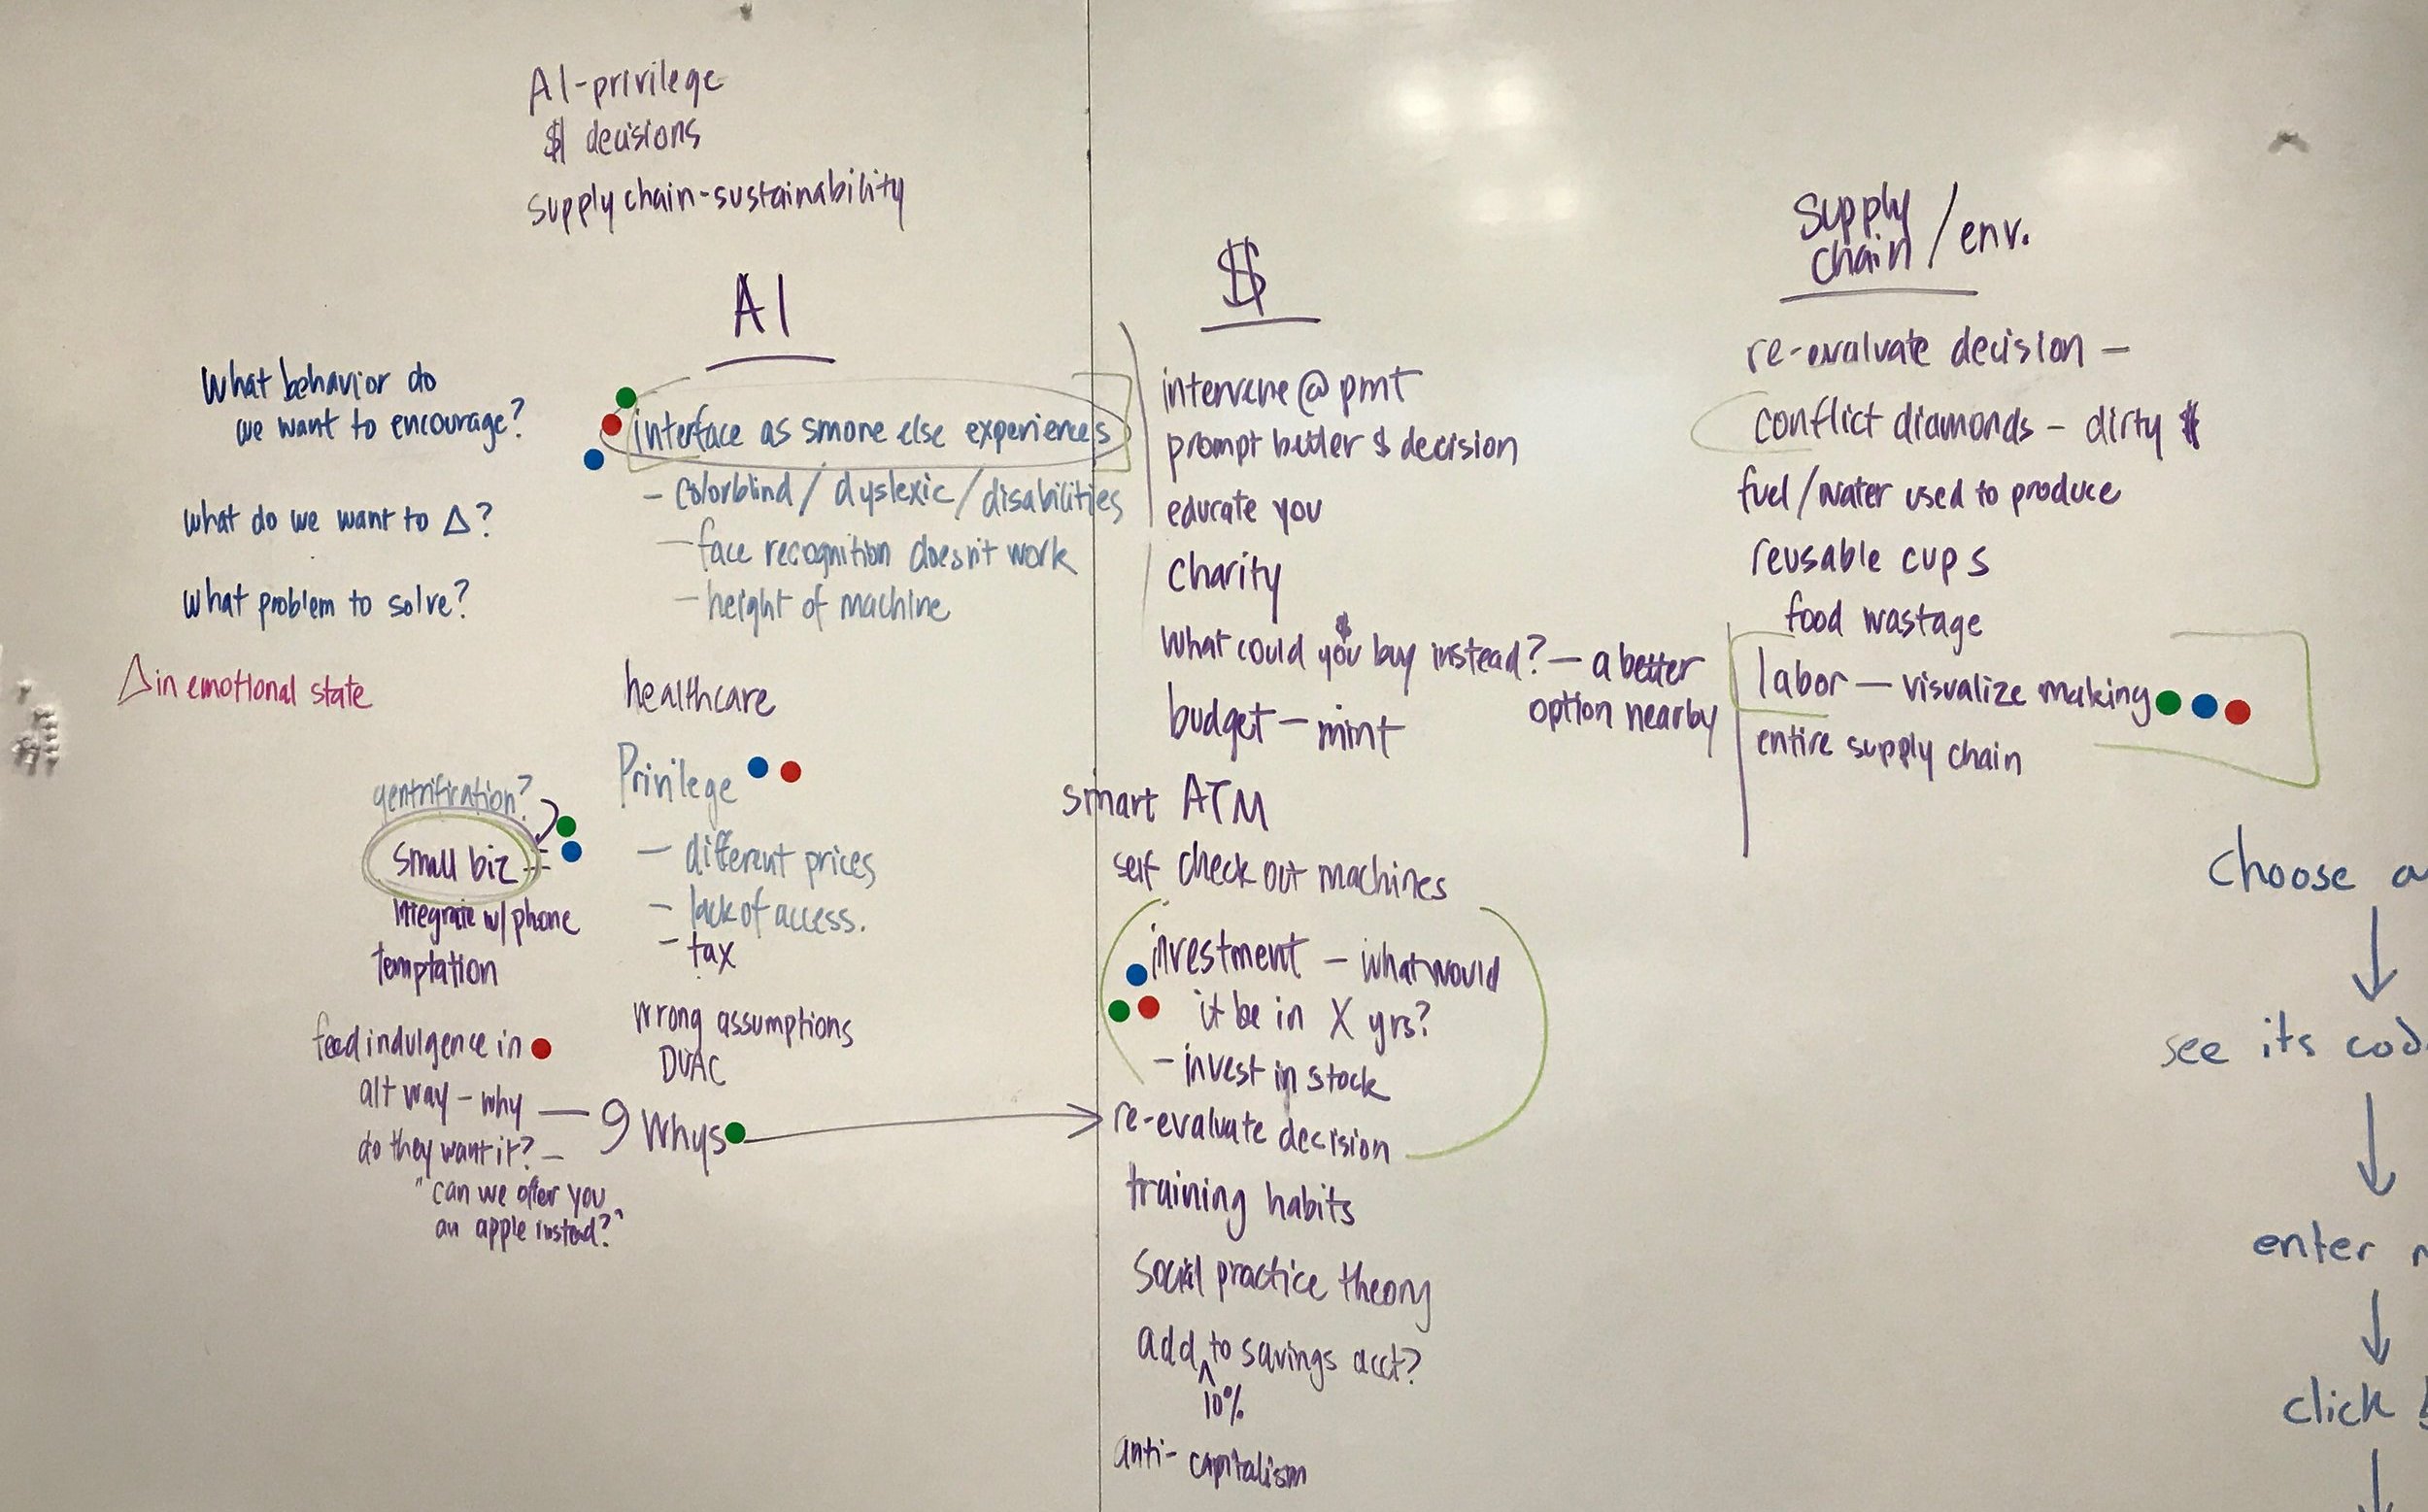 AI-privilege
$ decisions
supply chain-sustainability
AI
What behavior do
we want to encourage?
what do we want to Δ?
what problem to solve?
Δ in emotional state
interface as smone else experiences
- colorblind / dyslexic / disabilities
- face recognition doesn't work
- height of machine
healthcare
Privilege
- different prices
- lack of access.
- tax
wrong assumptions
DVAC
9 Whys
gentrification?
small biz
integrate w/ phone
temptation
feed indulgence in
alt way - why
do they want it? -
"can we offer you
an apple instead?"
$
intervene @ pmt
prompt better $ decision
educate you
charity
$
what could you buy instead? - a better
option nearby
budget - mint
smart ATM
self check out machines
investment - what would
it be in X yrs?
- invest in stock
re-evaluate decision
training habits
Social practice theory
add ^ to savings acct?
10%
anti-capitalism
supply
chain / env.
re-evaluate decision -
conflict diamonds - dirty $
fuel / water used to produce
reusable cups
food wastage
labor - visualize making
entire supply chain
choose a
see its cod
enter
click